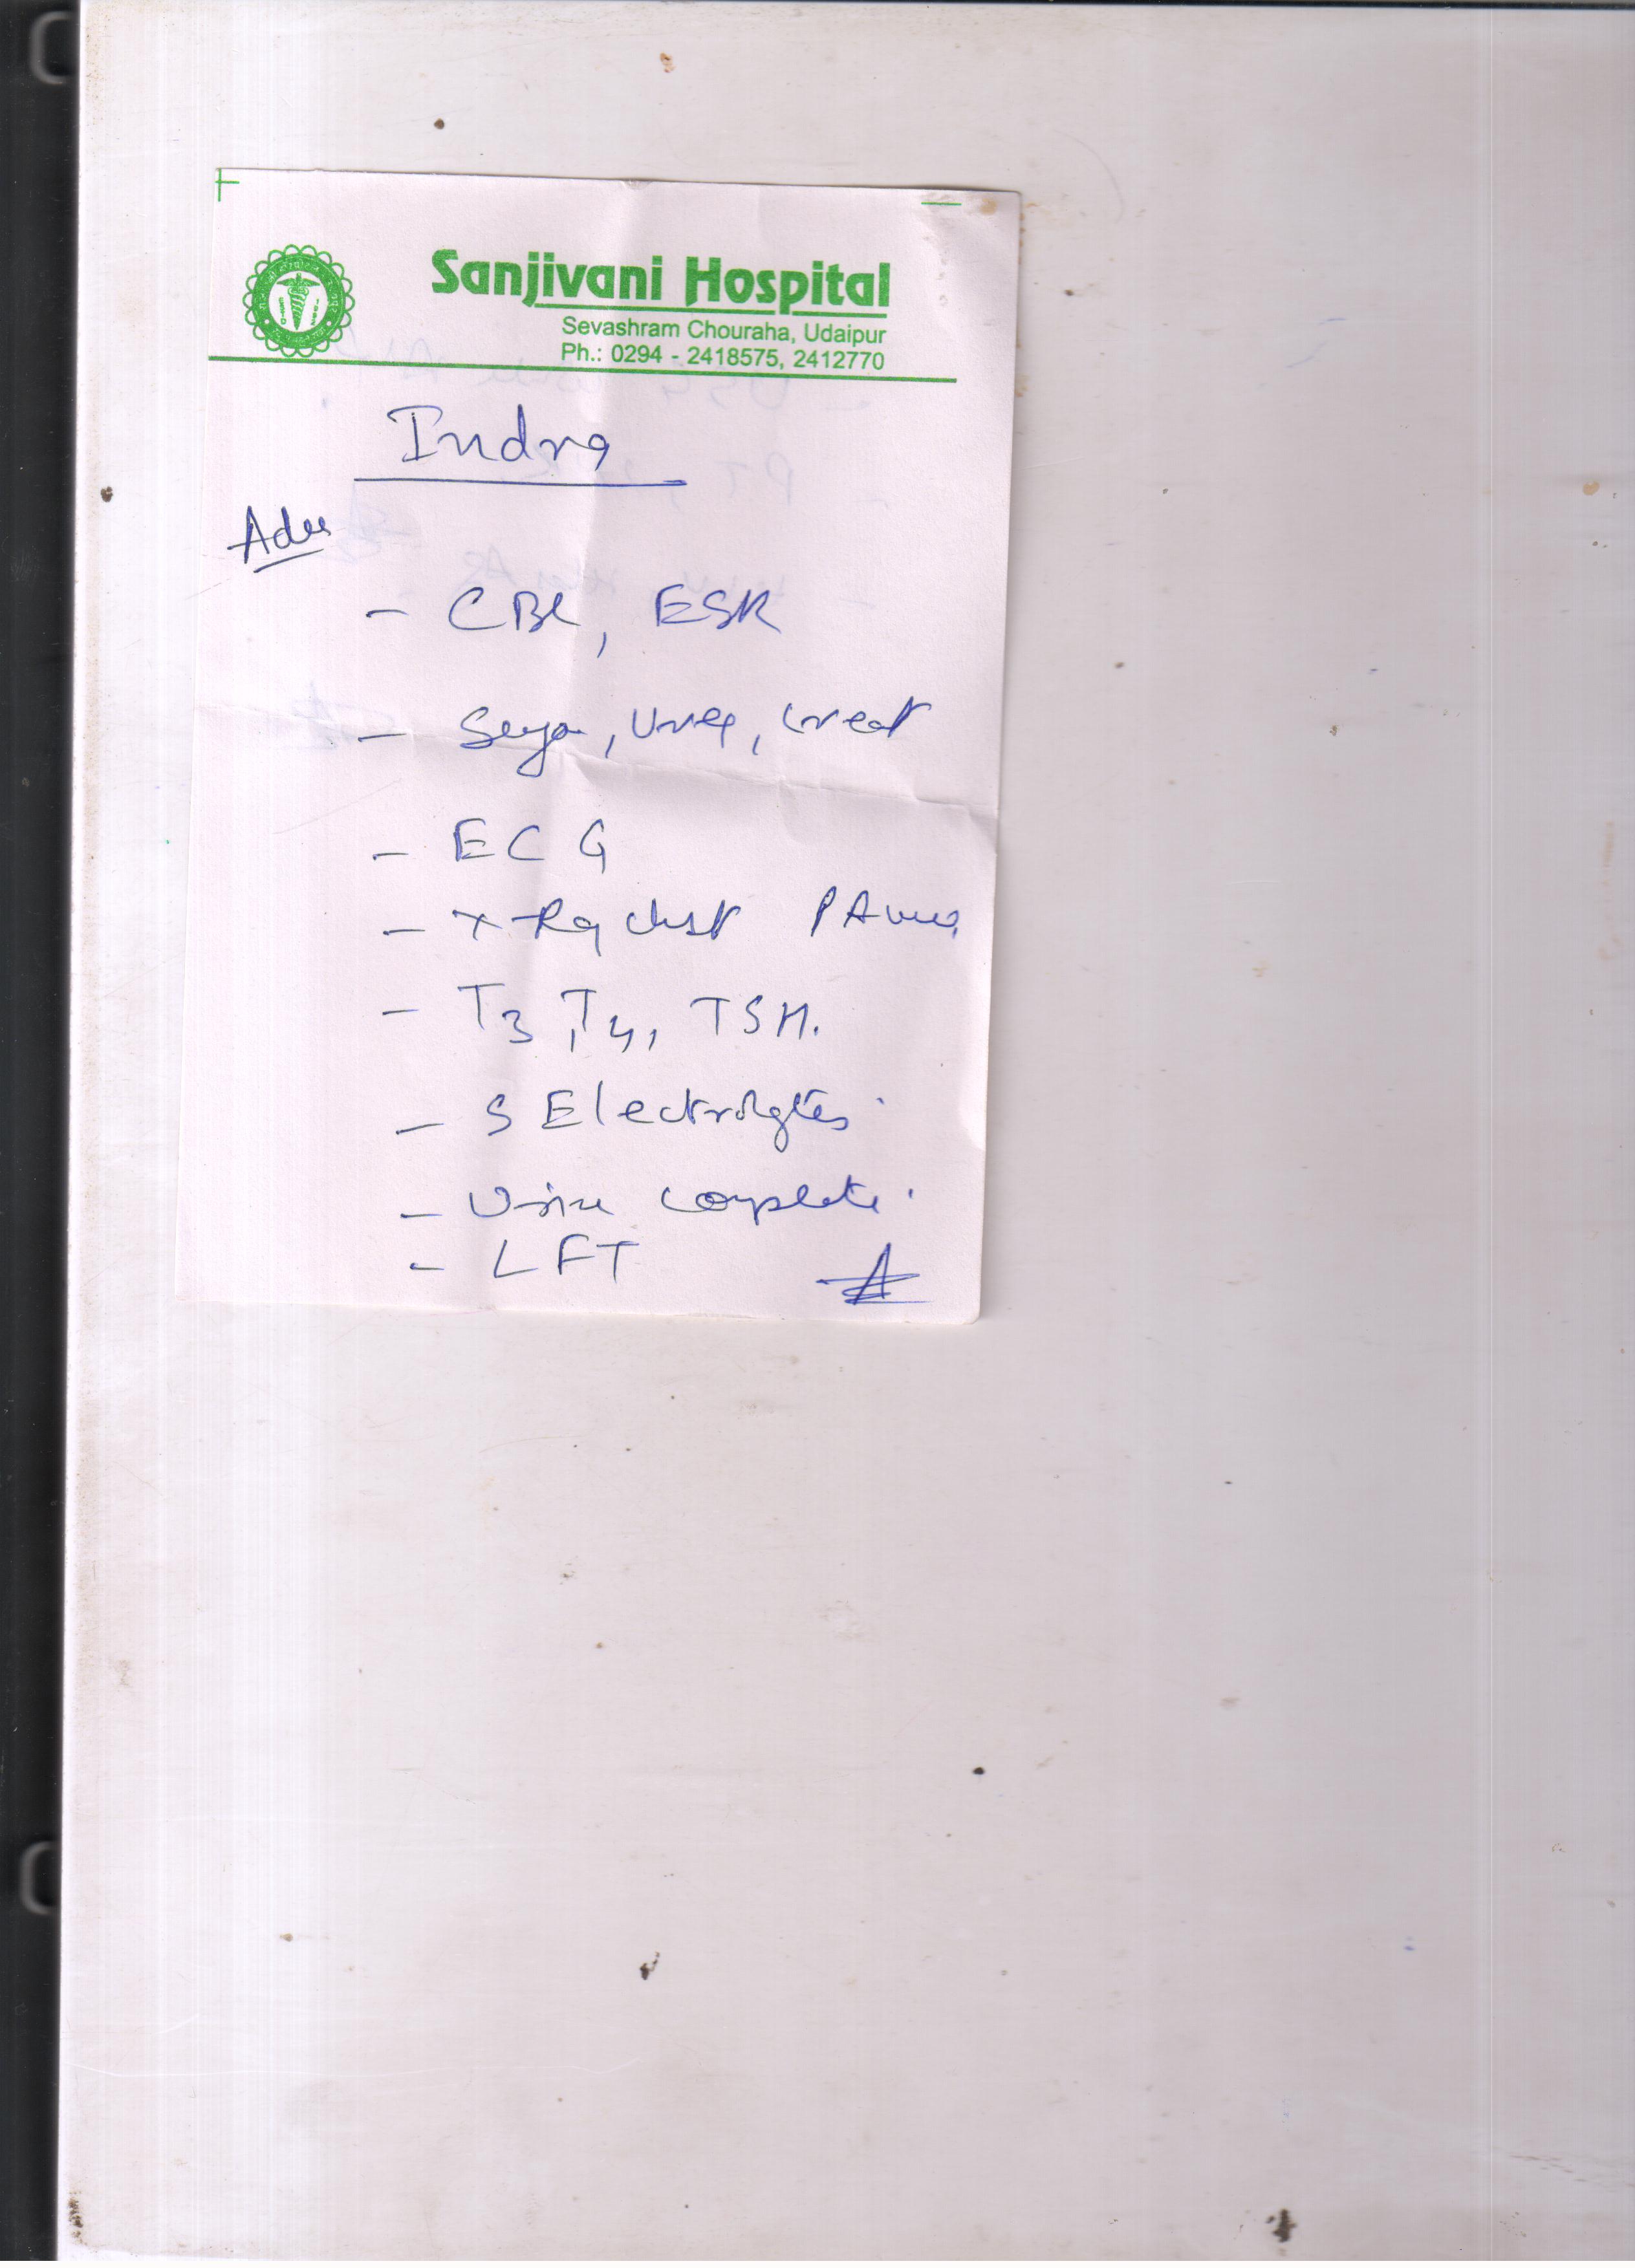 Sanjivani Hospital
Sevashram Chouraha, Udaipur
Ph.: 0294 - 2418575, 2412770
Indra
Adv
- CBC, ESR
- Sugar, Urea, Creat
- ECG
- X-Ray chest PA view
- T3, T4, TSH.
- S Electrolytes.
- Urine complete.
- LFT